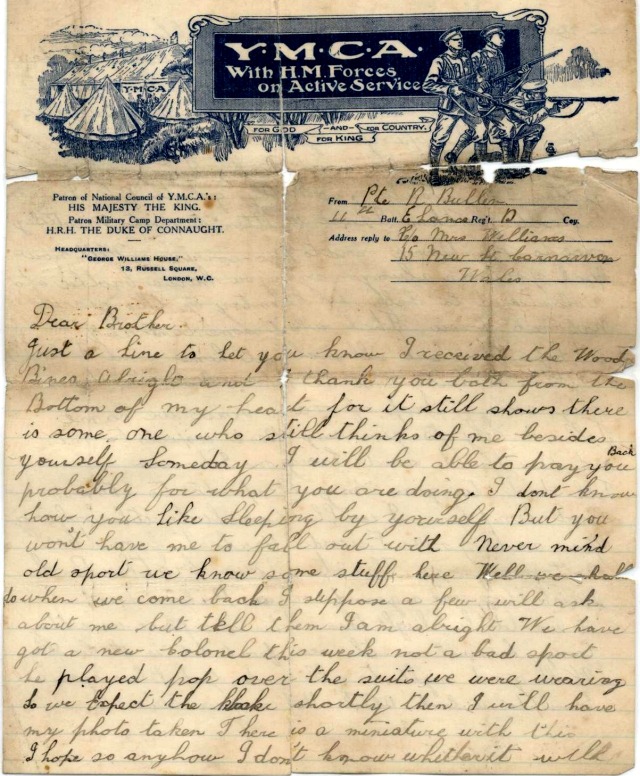 Y.M.C.A.
With H.M. Forces
on Active Service
Y.M.C.A
FOR GOD —AND— FOR COUNTRY.
FOR KING
Patron of National Council of Y.M.C.A.'s:
HIS MAJESTY THE KING.
Patron Military Camp Department:
H.R.H. THE DUKE OF CONNAUGHT.
HEADQUARTERS:
"GEORGE WILLIAMS HOUSE,"
13, RUSSELL SQUARE,
LONDON, W.C.
From Pte R Bullen
11th Batt. E Lancs Reg't. D Coy.
Address reply to C/o Mrs Williams
15 New St Carnarvon
Wales
Dear Brother.
Just a line to let you know I received the Wood
Bines alright and I thank you both from the
Bottom of my heart for it still shows there
is some one who still thinks of me besides
yourself Someday I will be able to pay you Back
probably for what you are doing. I dont know
how you like Sleeping by yourself But you
won't have me to fall out with Never mind
old sport we know some stuff here Well we shall
do when we come back I suppose a few will ask
about me but tell them I am alright We have
got a new Colonel this week not a bad sport
he played pop over the suits we were wearing
So we Expect the shortly then I will have
my photo taken There is a miniature with this
I hope so anyhow I don't know whether it will